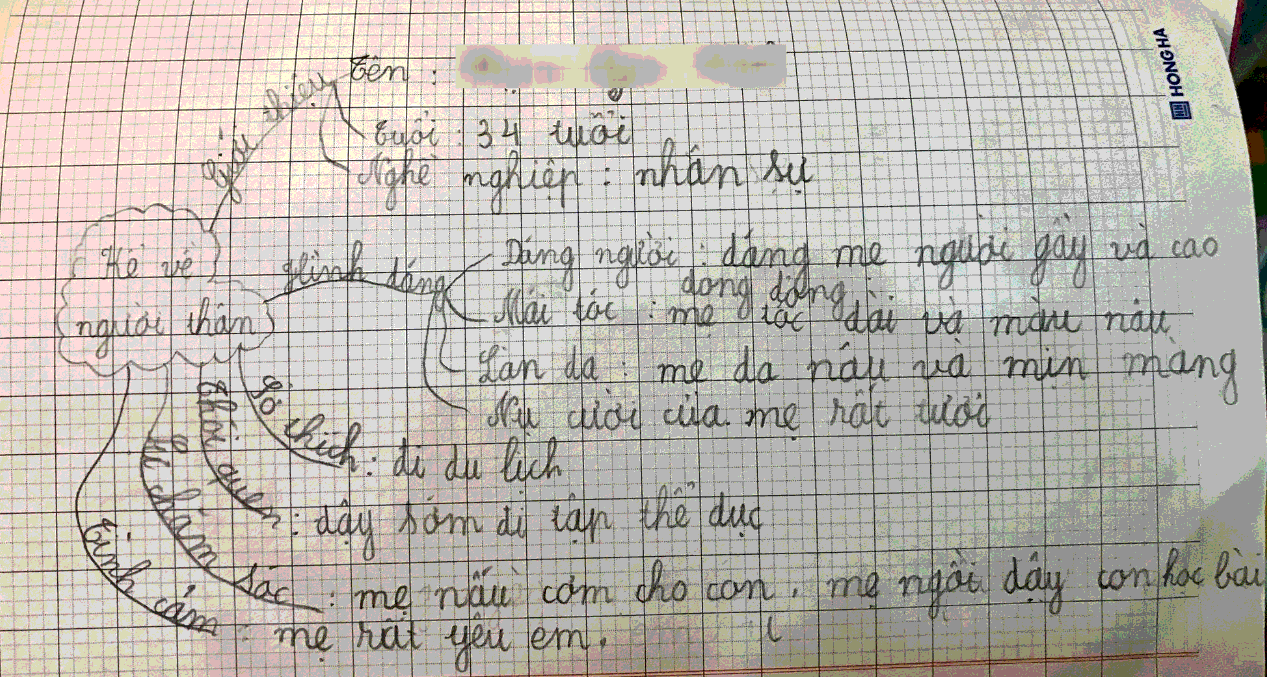 HONG HA
Giới thiệu
Tên :
Tuổi : 34 tuổi
Nghề nghiệp : nhân sự
Kể về
người thân
Hình dáng
Dáng người : dáng mẹ người gầy và cao
dong dỏng
Mái tóc : mẹ tóc dài và màu nâu
Làn da : mẹ da nâu và mịn màng
Nụ cười của mẹ rất tươi
Sở thích : đi du lịch
Thói quen : dậy sớm đi tập thể dục
chăm sóc : mẹ nấu cơm cho con. mẹ ngồi dậy con học bài
Tình cảm : mẹ rất yêu em.